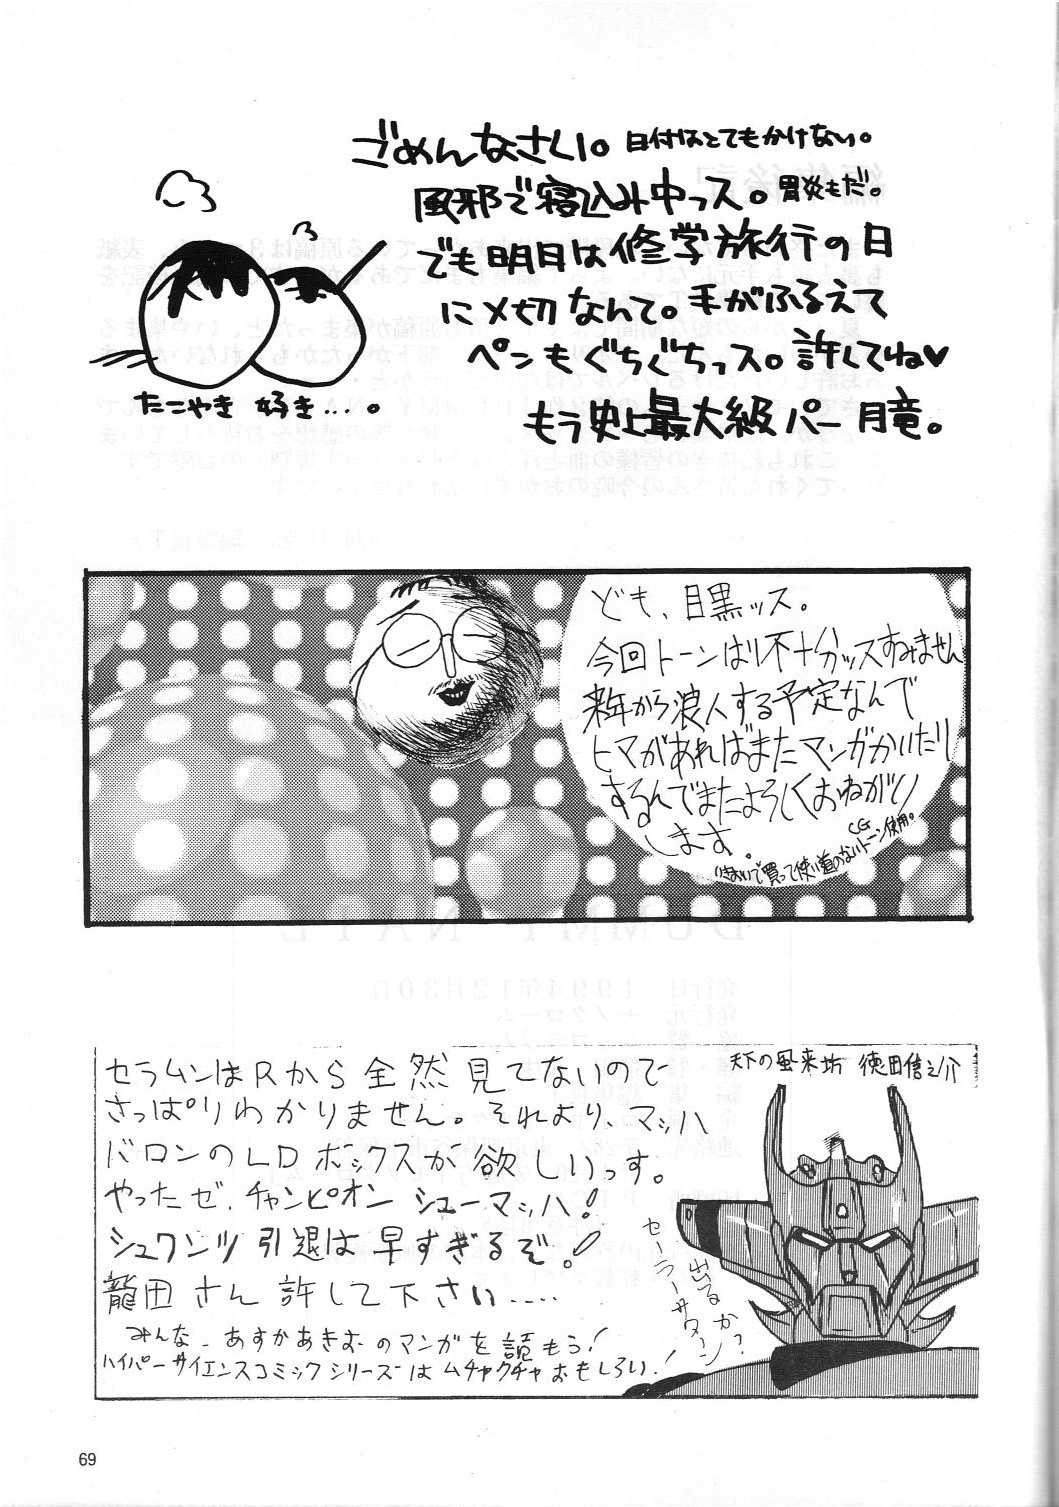 ごめんなさい。日付はとてもかけない。
風邪で寝込み中っス。胃炎もだ。
でも明日は修学旅行の日
に〆切なんて。手がふるえて
ペンもぐちぐちっス。許してね♥
もう史上最大級パー 月竜。
たこやき 好き…。
ども、目黒ッス。
今回トーンはり不十分ッスすみません
来年から浪人する予定なんで
ヒマがあればまたマンガかいたり
するんでまたよろしくおねがい
します。
いきおいで買って使い道のないCGトーン使用。
天下の風来坊 徳田信之介
セラムンはRから全然見てないので
さっぱりわかりません。それより、マッハ
バロンのLDボックスが欲しいっす。
やったゼ、チャンピオン シューマッハ!
シュワンツ引退は早すぎるぞ!
龍田さん許して下さい....
みんな、あすかあきおのマンガを読もう!
ハイパーサイエンスコミックシリーズはムチャクチャおもしろい!
出るか?
セーラーサターン!
69
発行日 1994年12月30日
発行元 モノクローム